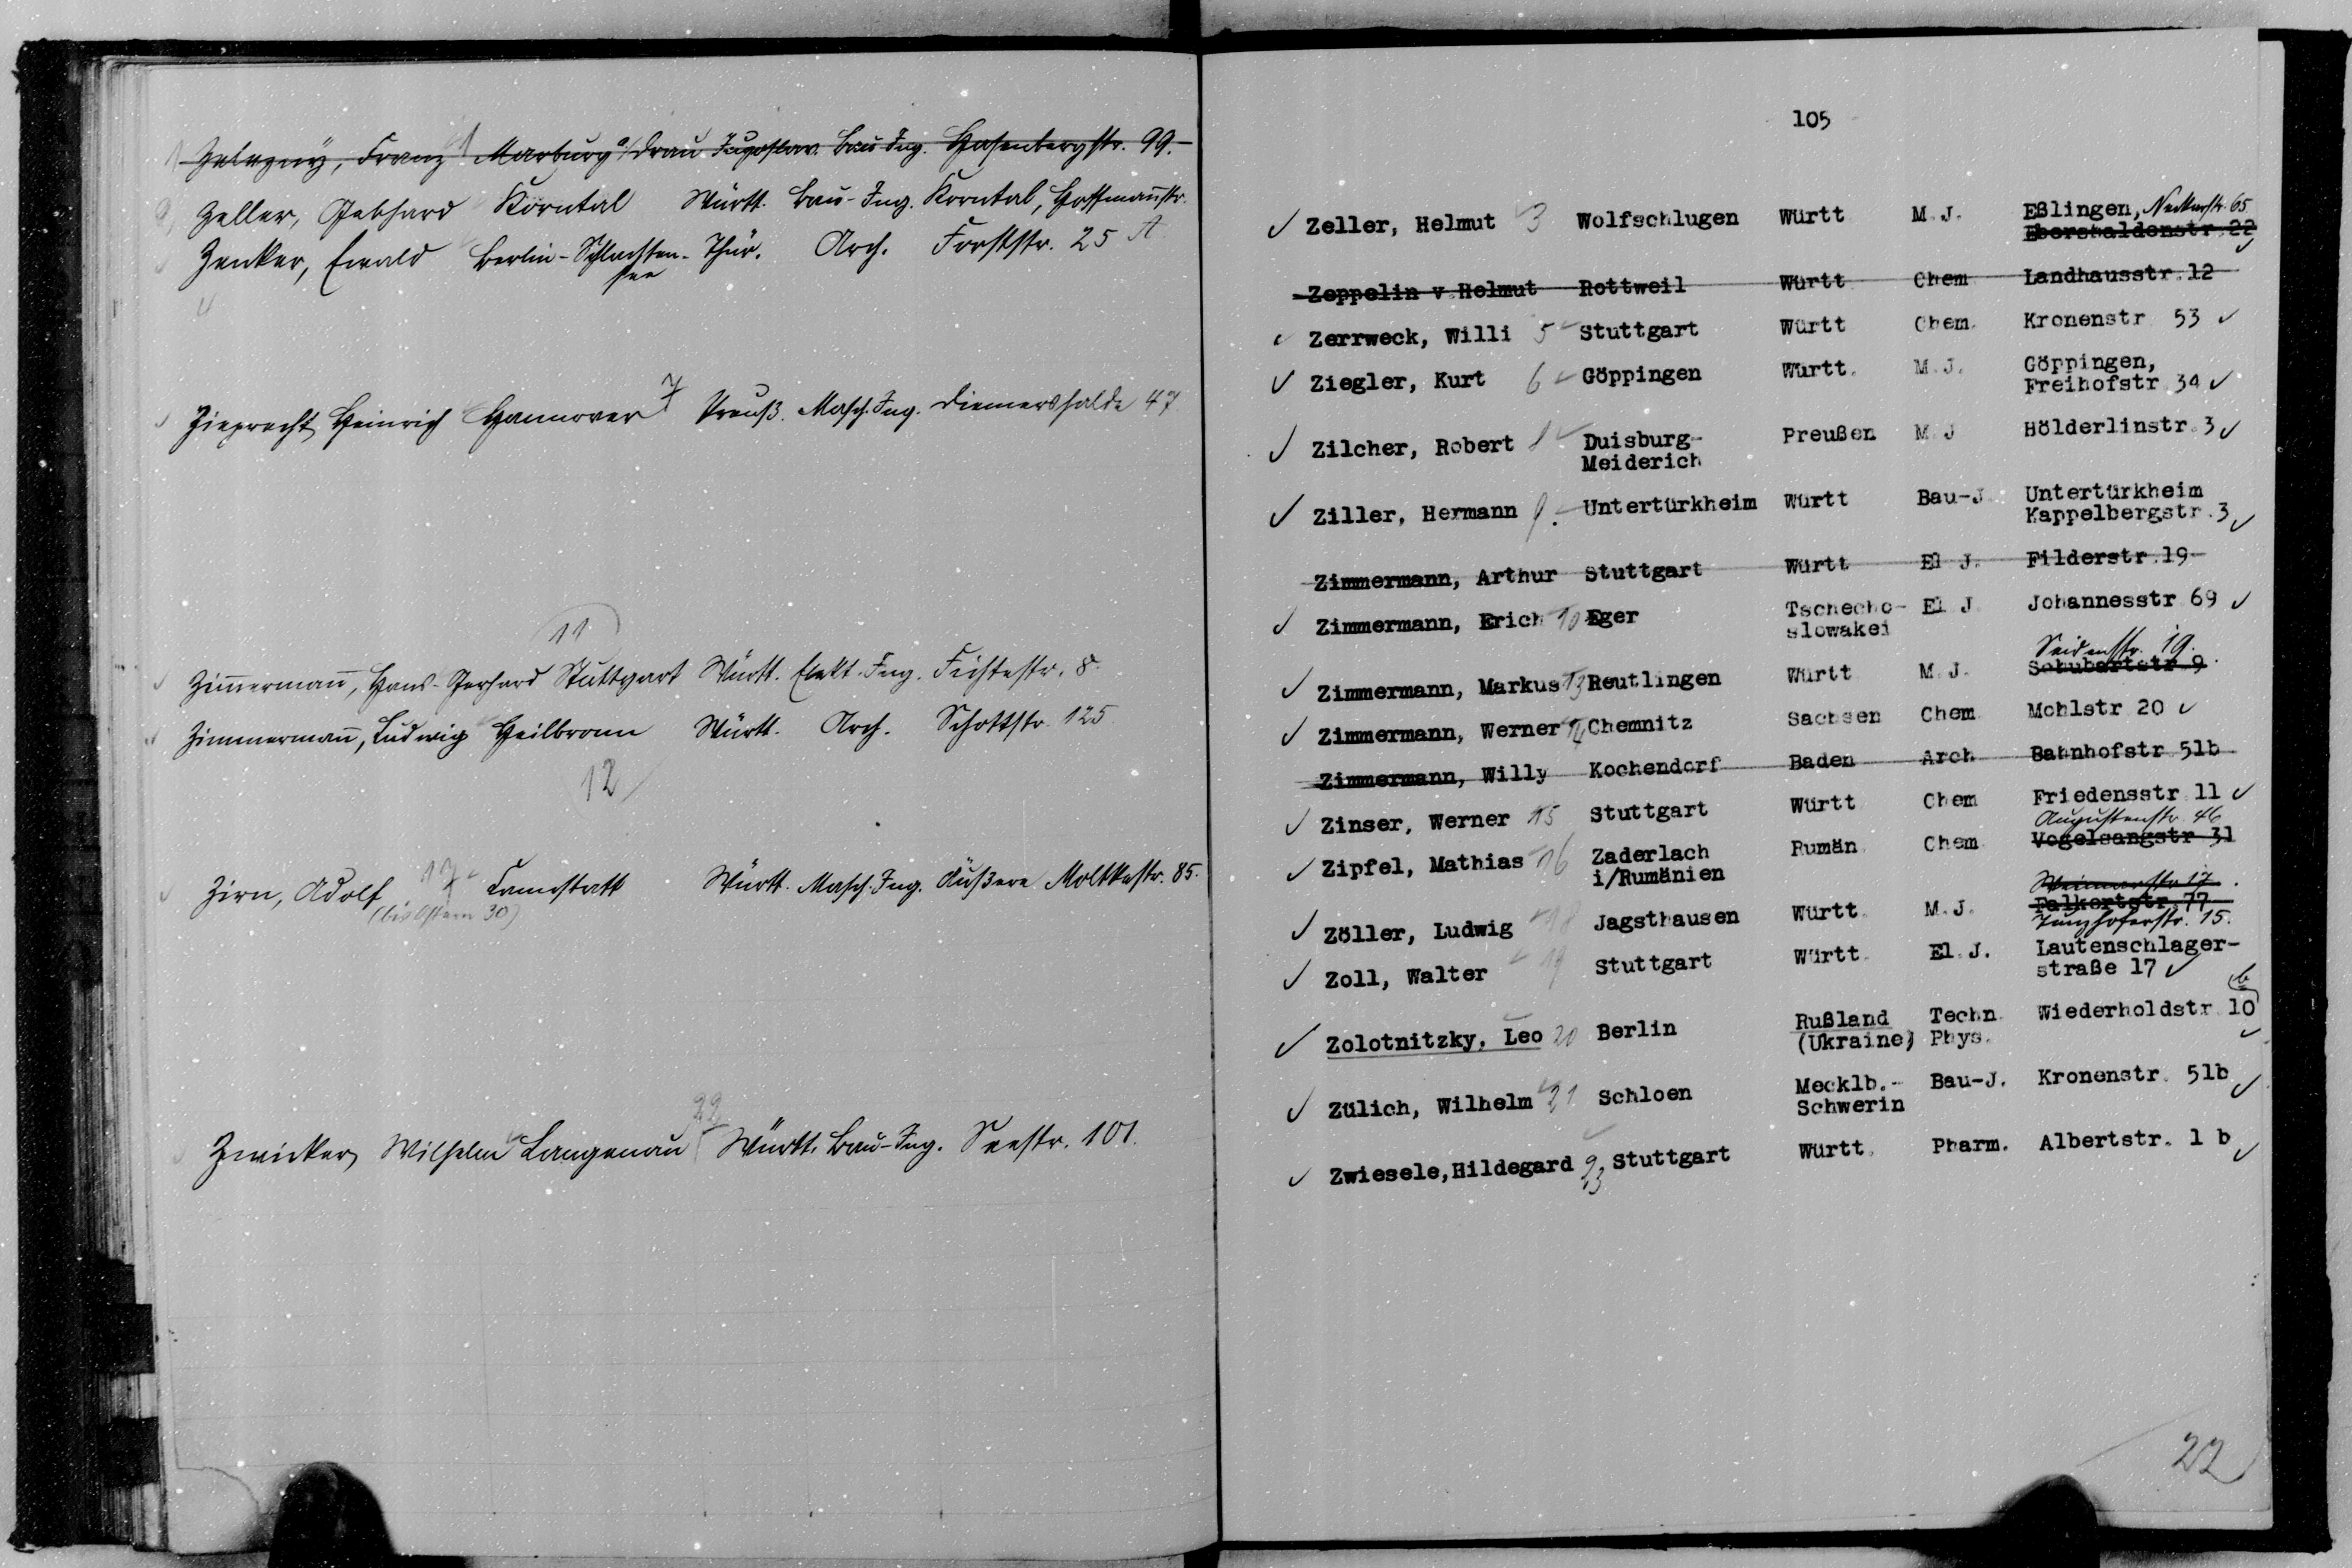 Zelezny, Franz 1 Marburg a/Drau Jugoslav. Bau Ing. Hasenbergstr. 99.
Zeller, Gebhard Korntal Württ. Bau-Ing. Korntal, Hoffmannstr.
Zenker, Ewald Berlin-Schlachten- Thür. Arch. Forststr. 25 A
see
4
Zieprecht Heinrich Hannover 7 Preuß. Masch. Ing. Diemershalde 47
11
Zimmermann, Hans-Gerhard Stuttgart Württ. Elekt. Ing. Fichtestr. 8
Zimmermann, Ludwig Heilbronn Württ. Arch. Schottstr. 125
12
Zirn, Adolf 17 Cannstatt Württ. Masch. Ing. Äußere Moltkestr. 85.
(bis Ostern 30)
22
Zwicker, Wilhelm Langenau Württ. Bau-Ing. Seestr. 101.
105
Zeller, Helmut 3 Wolfschlugen Württ M.J. Eßlingen, Neckarstr. 65
Ebershaldenstr. 22
Zeppelin v. Helmut Rottweil Württ Chem Landhausstr. 12
Zerrweck, Willi 5 Stuttgart Württ Chem. Kronenstr 53
Ziegler, Kurt 6 Göppingen Württ. M.J. Göppingen,
Freihofstr 34
Zilcher, Robert 8 Duisburg- Preußen M J Hölderlinstr. 3
Meiderich
Ziller, Hermann 9. Untertürkheim Württ Bau-J. Untertürkheim
Kappelbergstr. 3
Zimmermann, Arthur Stuttgart Württ El J. Filderstr. 19
Zimmermann, Erich 10 Eger Tschecho- El J. Johannesstr 69
slowakei
Seidenstr. 19.
Zimmermann, Markus 13 Reutlingen Württ M.J. Schubartstr. 9
Zimmermann, Werner 14 Chemnitz Sachsen Chem Mohlstr 20
Zimmermann, Willy Kochendorf Baden Arch Bahnhofstr 51b
Zinser, Werner 15 Stuttgart Württ Chem Friedensstr 11
Augustenstr. 46
Zipfel, Mathias 16 Zaderlach Rumän. Chem Vogelsangstr 31
i/Rumänien
Weimarstr 17
Zöller, Ludwig 18 Jagsthausen Württ M.J. Falkertstr. 77
Junghoferstr. 15.
Zoll, Walter 19 Stuttgart Württ. El.J. Lautenschlager-
straße 17
Zolotnitzky, Leo 20 Berlin Rußland Techn Wiederholdstr 10 b
(Ukraine) Phys.
Zülich, Wilhelm 21 Schloen Mecklb.- Bau-J. Kronenstr. 51b
Schwerin
Zwiesele, Hildegard 23 Stuttgart Württ. Pharm. Albertstr. 1 b
22